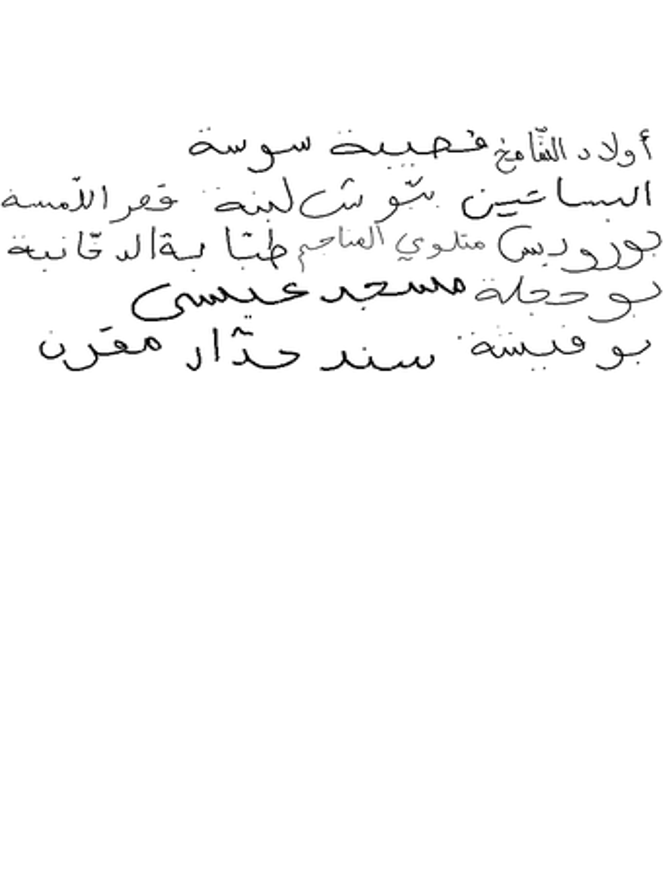 أولاد الشّامخ قصيبة سوسة
البساتين شّوش لبنة قصر اللّمسة
بورويس متلوي المناجم طبّابة الدخّانية
بوحجلة مسجد عيسى
بوفيشة سند حدّار مقرن